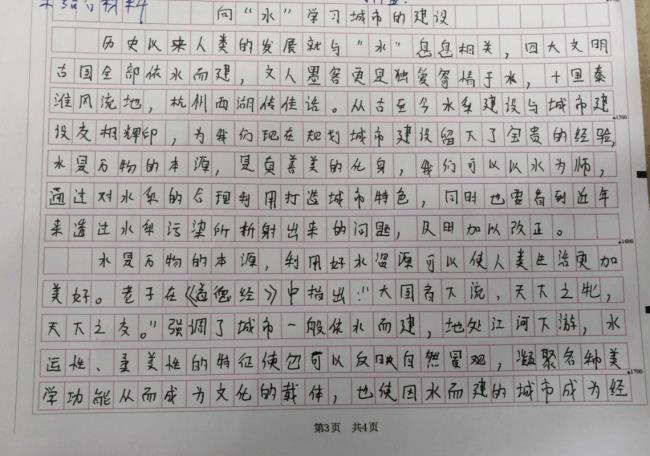 向“水”学习城市的建设
历史以来人类的发展就与“水”息息相关，四大文明
古国全部依水而建，文人墨客更是独爱寄情于水，十里秦
淮风流地，杭州西湖传佳话。从古至今水系建设与城市建
设交相辉印，为我们现在规划城市建设留下了宝贵的经验，
水是万物的本源，是真善美的化身，我们可以以水为师，
通过对水系的合理利用打造城市特色，同时也要看到近年
来通过水系污染所折射出来的问题，及时加以改正。
水是万物的本源，利用好水资源可以使人类生活更加
美好。老子在《道德经》中指出：“大国者下流，天下之牝，
天下之交。”强调了城市一般依水而建，地处江河下游，水
运性、柔美性的特征使它可以反映自然景观，凝聚各种美
学功能从而成为文化的载体，也使因水而建的城市成为经
1500
1600
1700
第3页 共4页